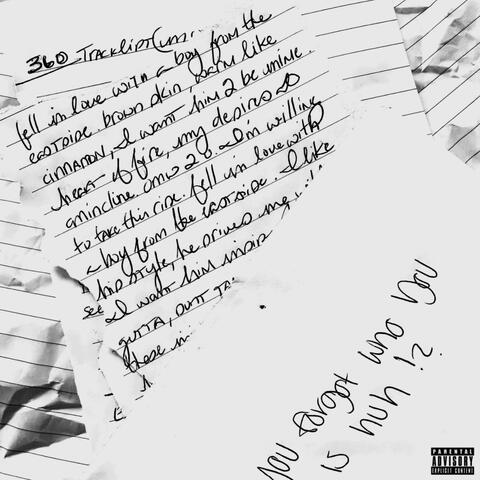 360 Tracklist
fell in love with a boy from the
eastside. brown skin, warm like
cinnamon, I want him 2 be mine.
heart of fire, my desires
incline omw 2 I'm willing
to take this ride. fell in love with
a boy from the eastside. I like
his style, he drives me
see I want him
gutta, outt
these
you forgot who you
is huh !?
PARENTAL
ADVISORY
EXPLICIT CONTENT